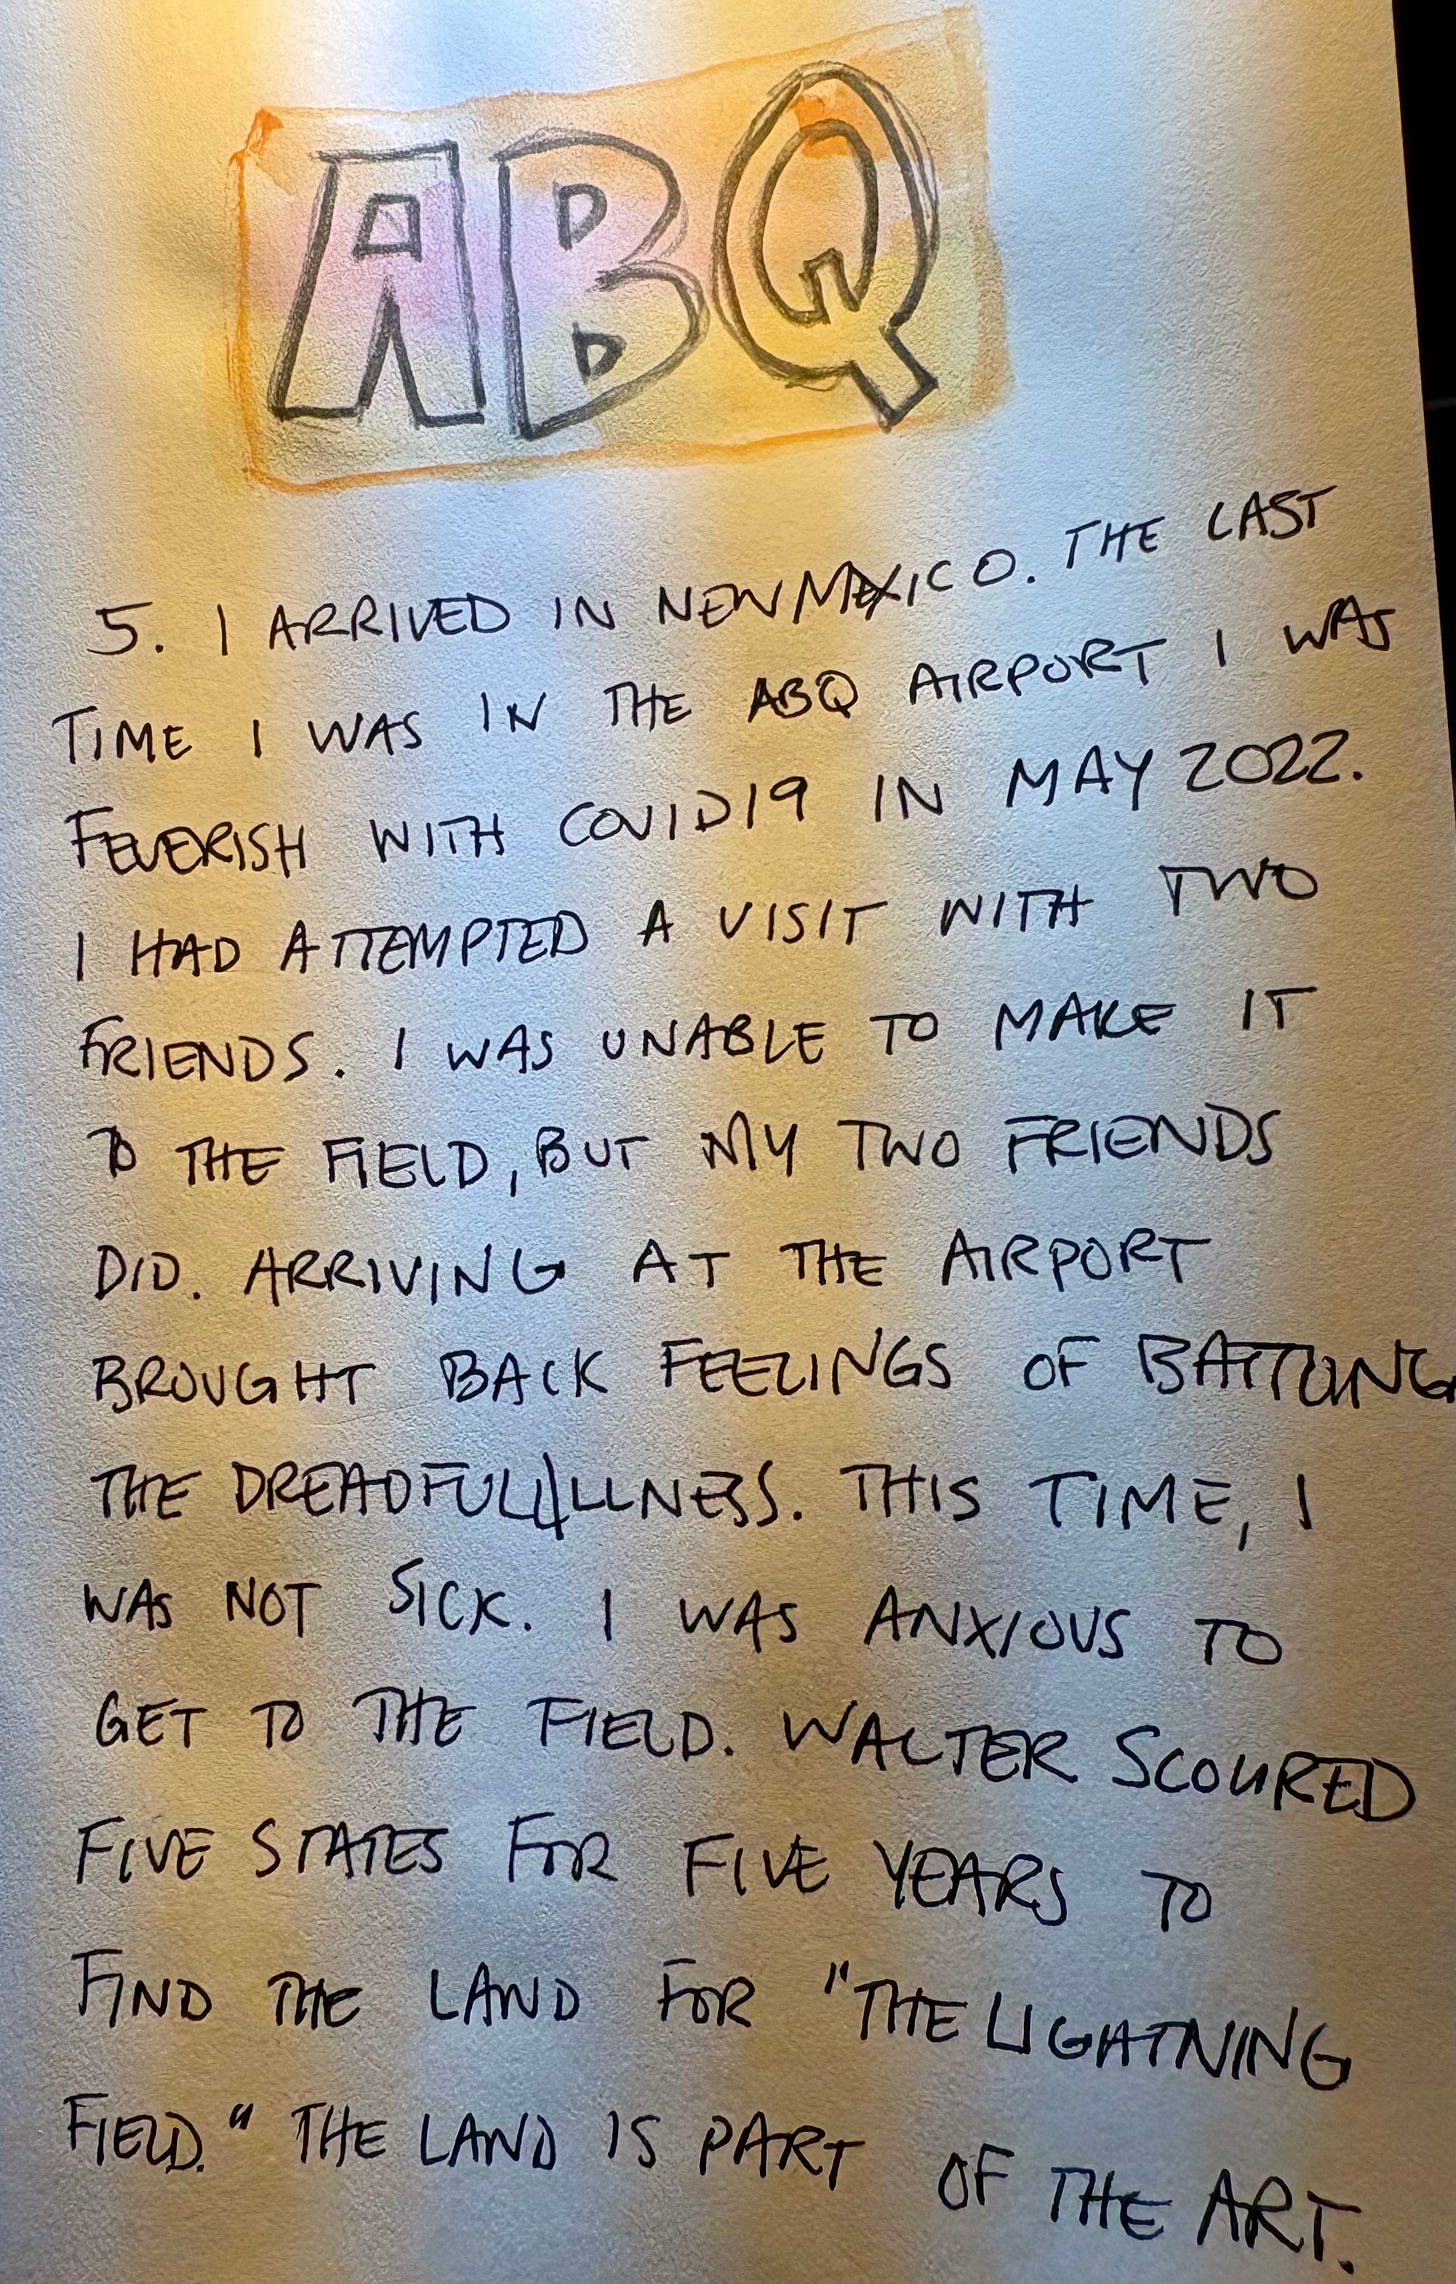 ABQ
5. I ARRIVED IN NEW MEXICO. THE LAST
TIME I WAS IN THE ABQ AIRPORT I WAS
FEVERISH WITH COVID19 IN MAY 2022.
I HAD ATTEMPTED A VISIT WITH TWO
FRIENDS. I WAS UNABLE TO MAKE IT
TO THE FIELD, BUT MY TWO FRIENDS
DID. ARRIVING AT THE AIRPORT
BROUGHT BACK FEELINGS OF BATTLING
THE DREADFUL ILLNESS. THIS TIME, I
WAS NOT SICK. I WAS ANXIOUS TO
GET TO THE FIELD. WALTER SCOURED
FIVE STATES FOR FIVE YEARS TO
FIND THE LAND FOR "THE LIGHTNING
FIELD." THE LAND IS PART OF THE ART.